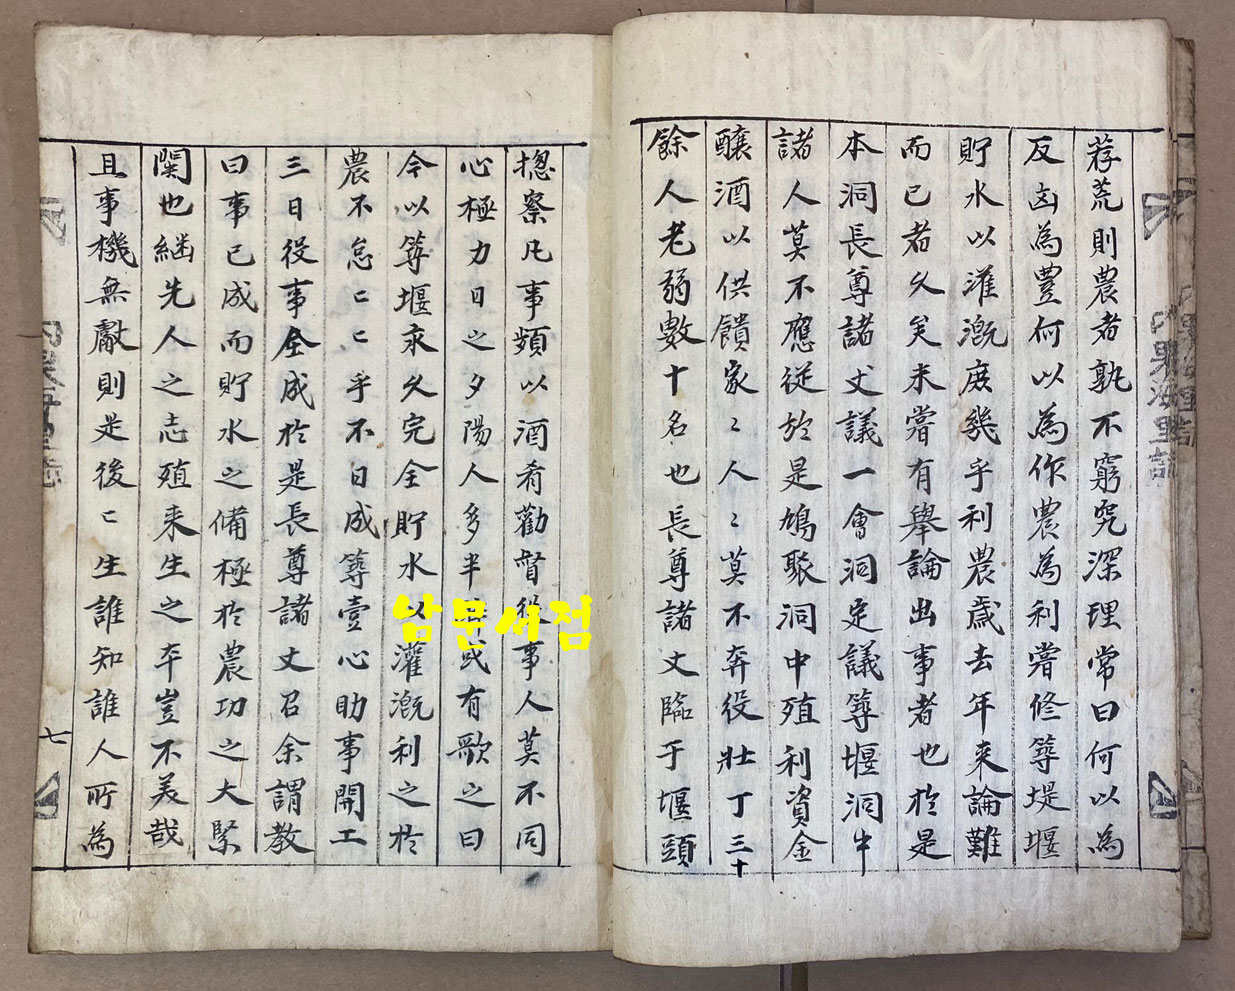 荐荒則農者孰不窮究深理常曰何以為
反凶為豊何以為作農為利嘗修等堤堰
貯水以灌漑庶幾乎利農歲去年來論難
而已者久矣未嘗有舉論出事者也於是
本洞長尊諸丈議一會洞定議等堰洞中
諸人莫不應従於是鳩聚洞中殖利資金
釀酒以供饋家〻人〻莫不奔役壯丁三十
餘人老弱數十名也長尊諸丈臨于堰頭
摠察凡事頻以酒肴勸督役事人莫不同
心極力日之夕陽人多半 或有歌之曰
今以等堰永久完全貯水以灌漑利之於
農不怠〻〻乎不日成等壹心助事開工
三日役事全成於是長尊諸丈召余謂教
曰事已成而貯水之備極於農功之大緊
関也継先人之志殖来生之卒豈不美哉
且事機無獻則是後〻生誰知誰人所為
七
남문서점